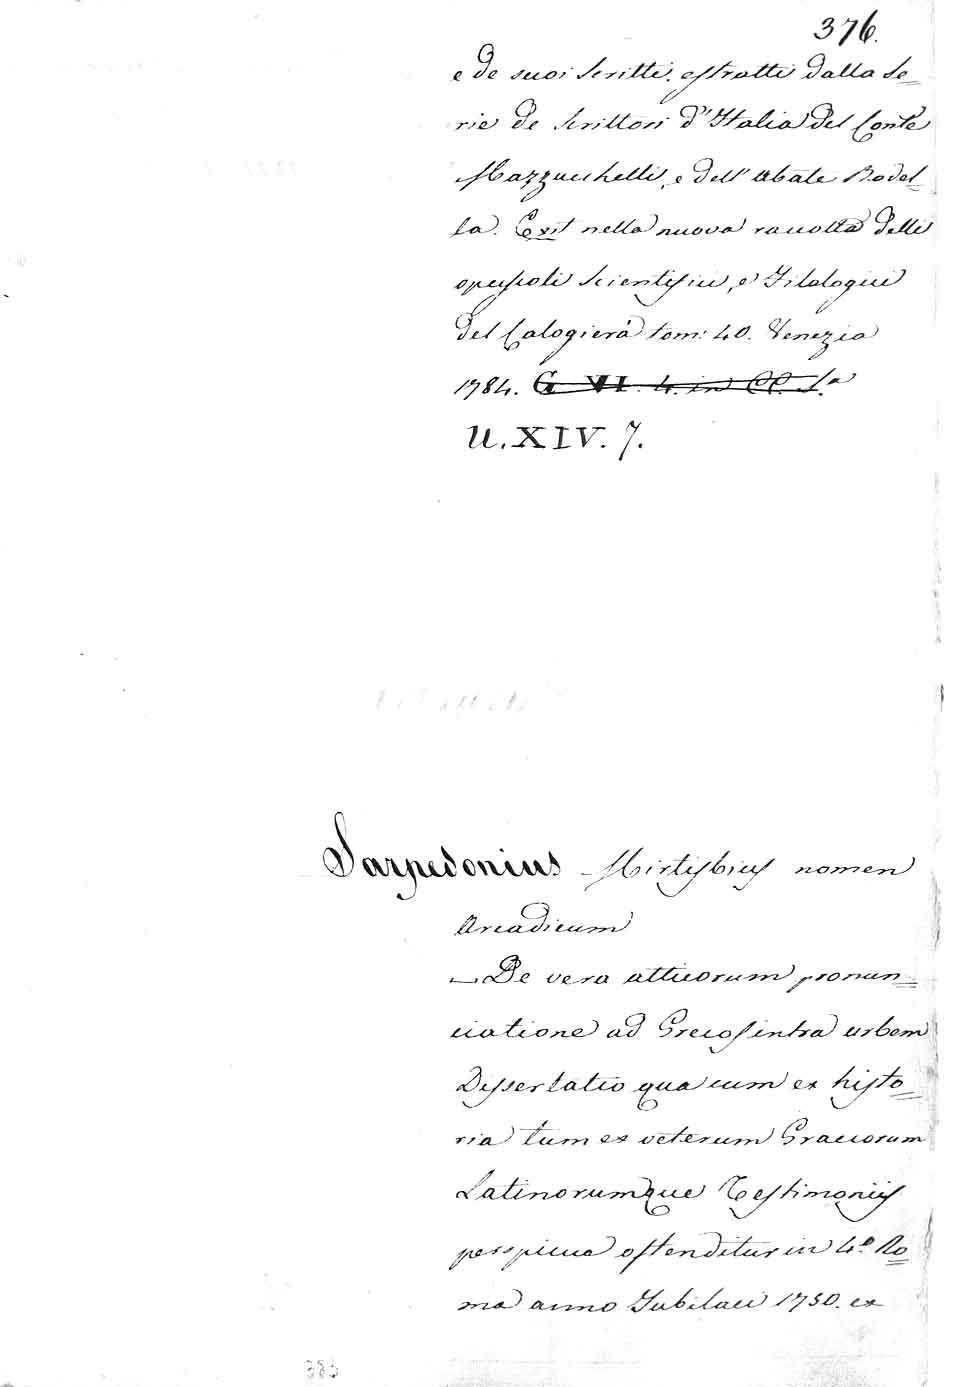 376.
e de suoi scritti. estratti dalla Se=
rie de scrittori d'Italia del Conte
Mazzuchelli, e dell'Abate Rodel=
la. Exit nella nuova raccolta delli
opuscoli scientifici, e Filologici
del Calogierà tom: 40. Venezia
1784. G VI. 4. in CC. Sa
U. XIV. 7.
Sarpedonius Mirtisbius nomen
Arcadicum
— De vera atticorum pronun=
ciatione ad Grecos intra urbem
Dissertatio qua cum ex histo=
ria tum ex veterum Graecorum
Latinorumque Testimoniis
perspicue ostenditur in 4.o Ro=
ma anno Jubilaei 1750. ex
383